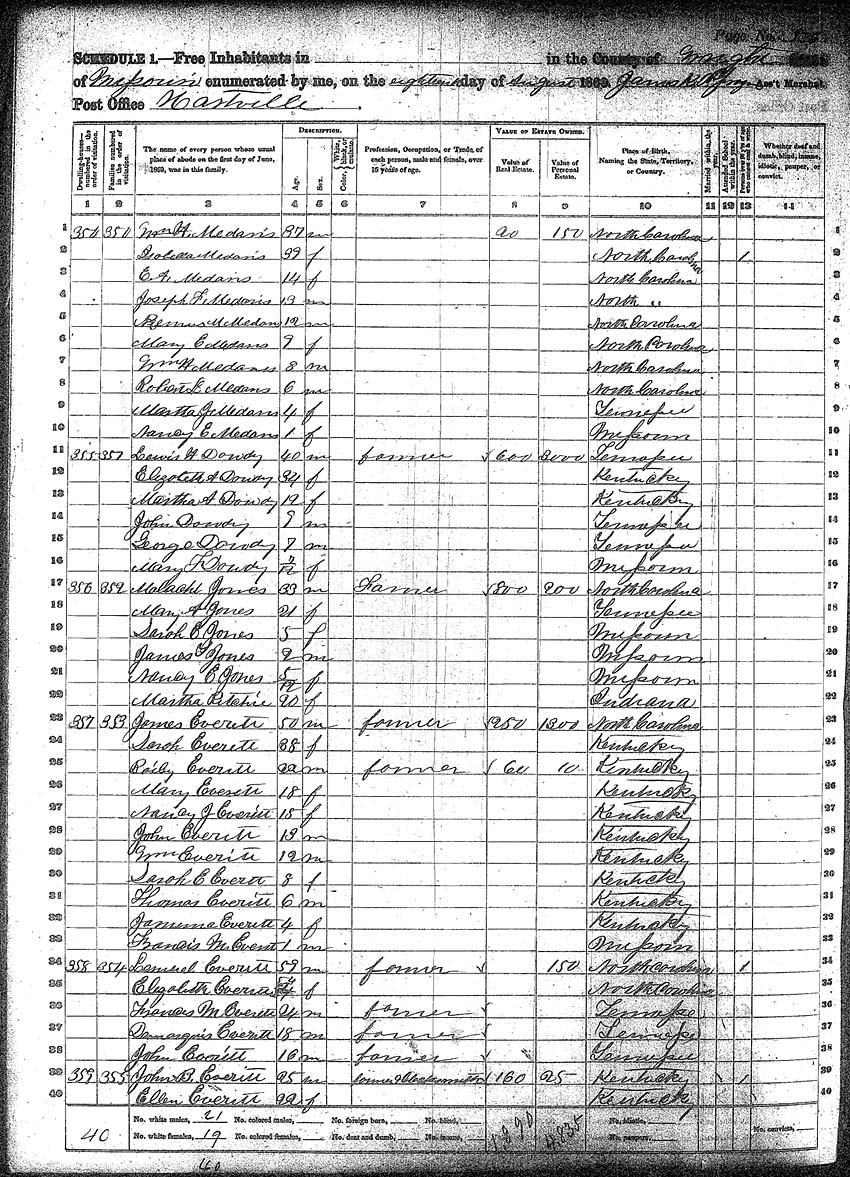 Page No.
SCHEDULE 1.—Free Inhabitants in in the County of Wright
of Missouri enumerated by me, on the eighteenth day of August 1860. James Ass't Marshal.
Post Office Hartville
Dwelling-houses—numbered in the order of visitation. Families numbered in the order of visitation. The name of every person whose usual place of abode on the first day of June, 1860, was in this family. DESCRIPTION. Age. Sex. Color, White, black, or mulatto. Profession, Occupation, or Trade, of each person, male and female, over 15 years of age. VALUE OF ESTATE OWNED. Value of Real Estate. Value of Personal Estate. Place of Birth, Naming the State, Territory, or Country. Married within the year. Attended School within the year. Persons over 20 y'rs of age who cannot read & write. Whether deaf and dumb, blind, insane, idiotic, pauper, or convict.
1 2 3 4 5 6 7 8 9 10 11 12 13 14
1 Wm H. Medaris 37 m 150 North Carolina 1
2 Medaris f North Carolina 1 2
3 E. A. Medaris 14 f North Carolina 3
4 Joseph F. Medaris 13 m North " 4
5 M Medaris 12 m North Carolina 5
6 Mary E Medaris 9 f North Carolina 6
7 Wm H Medaris 8 m North Carolina 7
8 Robert Medans 6 m North Carolina 8
9 Martha J Medans 4 f Tennessee 9
10 Nancy E Medans 1 f Missouri 10
11 355 Lewis H Dowdy 40 m farmer 600 Tennessee 11
12 Elizabeth A Dowdy 34 f Kentucky 12
13 Martha A Dowdy 12 f Kentucky 13
14 John Dowdy 9 m Tennessee 14
15 George Dowdy 7 m Tennessee 15
16 Mary F Dowdy f Missouri 16
17 356 352 Malachi Jones 33 m Farmer 800 200 North Carolina 17
18 Mary A Jones 21 f Tennessee 18
19 Sarah E Jones 5 f Missouri 19
20 James F Jones 2 m Missouri 20
21 Nancy E Jones 5/12 f Missouri 21
22 Martha Ritchie 20 f Indiana 22
23 357 353 James Everitt 50 m farmer 1300 North Carolina 23
24 Sarah Everitt 38 f Kentucky 24
25 Everitt 22 m farmer 60 10 Kentucky 25
26 Mary Everitt 18 f Kentucky 26
27 Nancy J Everitt 15 f Kentucky 27
28 John Everitt 13 m Kentucky 28
29 Wm Everitt 12 m Kentucky 29
30 Sarah E Everitt 8 f Kentucky 30
31 Thomas Everitt 6 m Kentucky 31
32 Everitt 4 f Kentucky 32
33 Francis M Everitt 1 m Missouri 33
34 358 354 Lemuel Everitt 59 m farmer 150 North Carolina 1 34
35 Elizabeth Everitt f North Carolina 35
36 Frances M Everitt 24 m farmer Tennessee 36
37 Everitt 18 m farmer Tennessee 37
38 John Everitt 16 m farmer Tennessee 38
39 359 355 John B. Everitt 25 m farmer & Blacksmith 160 25 Kentucky 1 39
40 Ellen Everitt 22 f Kentucky 40
No. white males, 21 No. colored males, No. foreign born, No. blind, No. idiotic,
40 No. white females, 19 No. colored females, No. deaf and dumb, No. insane, 4835 No. paupers, No. convicts,
40